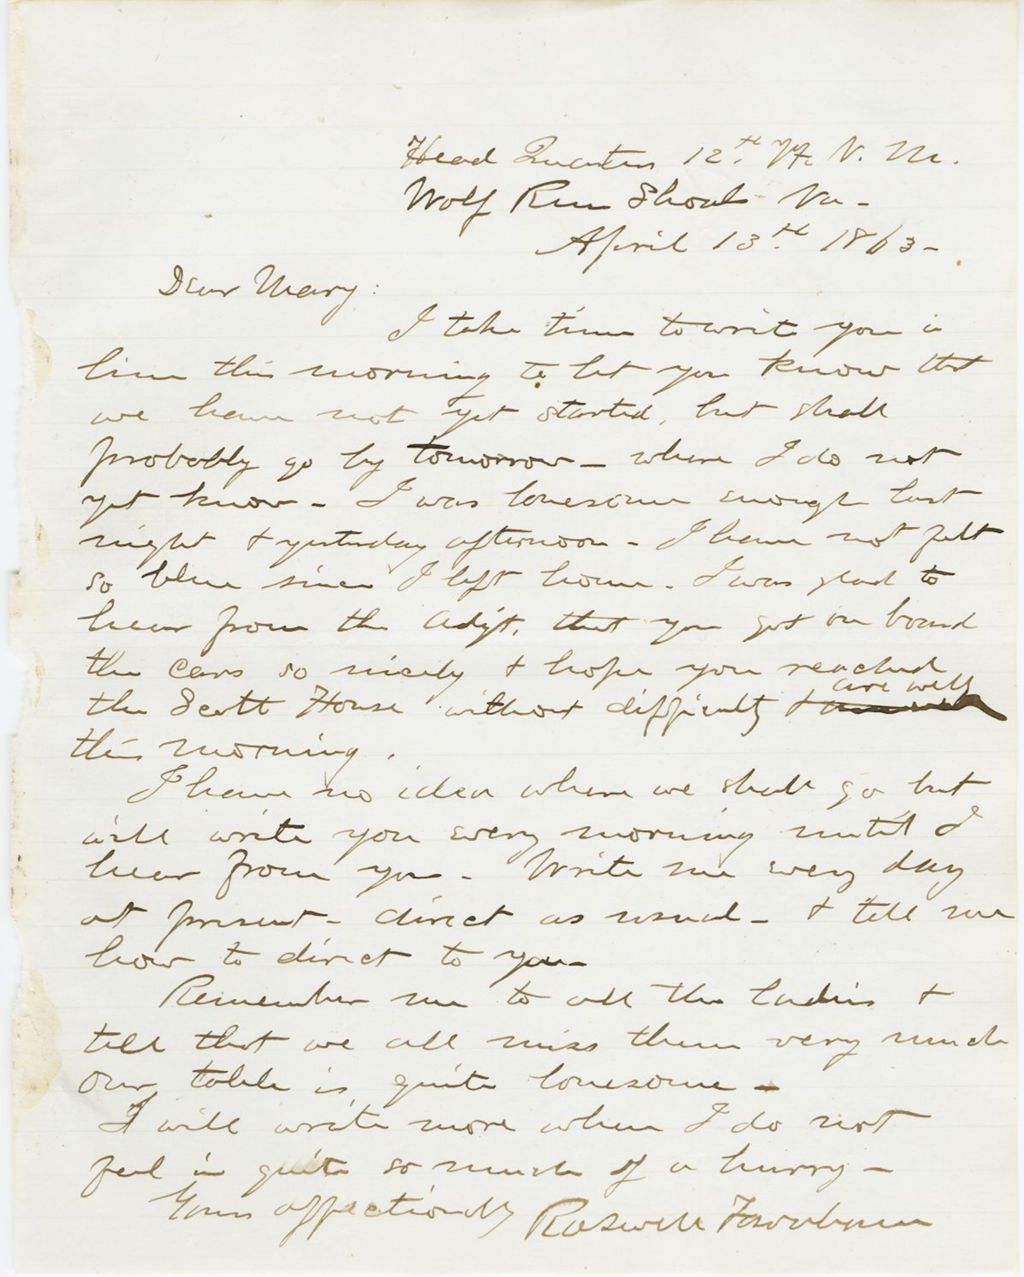 Head Quarters 12th Vt. V. M.
Wolf Run Shoals Va -
April 13th 1863 -
Dear Mary:
I take time to write you a
line this morning to let you know that
we have not yet started, but shall
probably go by tomorrow - where I do not
yet know - I was lonesome enough last
night & yesterday afternoon - I have not felt
so blue since I left home. I was glad to
hear from the Adjt. that you got on board
the cars so nicely & hope you reached
the Scott House without difficulty & are well
this morning.
I have no idea where we shall go but
will write you every morning until I
hear from you - Write me every day
at present - direct as usual - & tell me
how to direct to you -
Remember me to all the ladies &
tell that we all miss them very much
Our table is quite lonesome -
I will write more when I do not
feel in quite so much of a hurry -
Yours affectionately Roswell Farnham